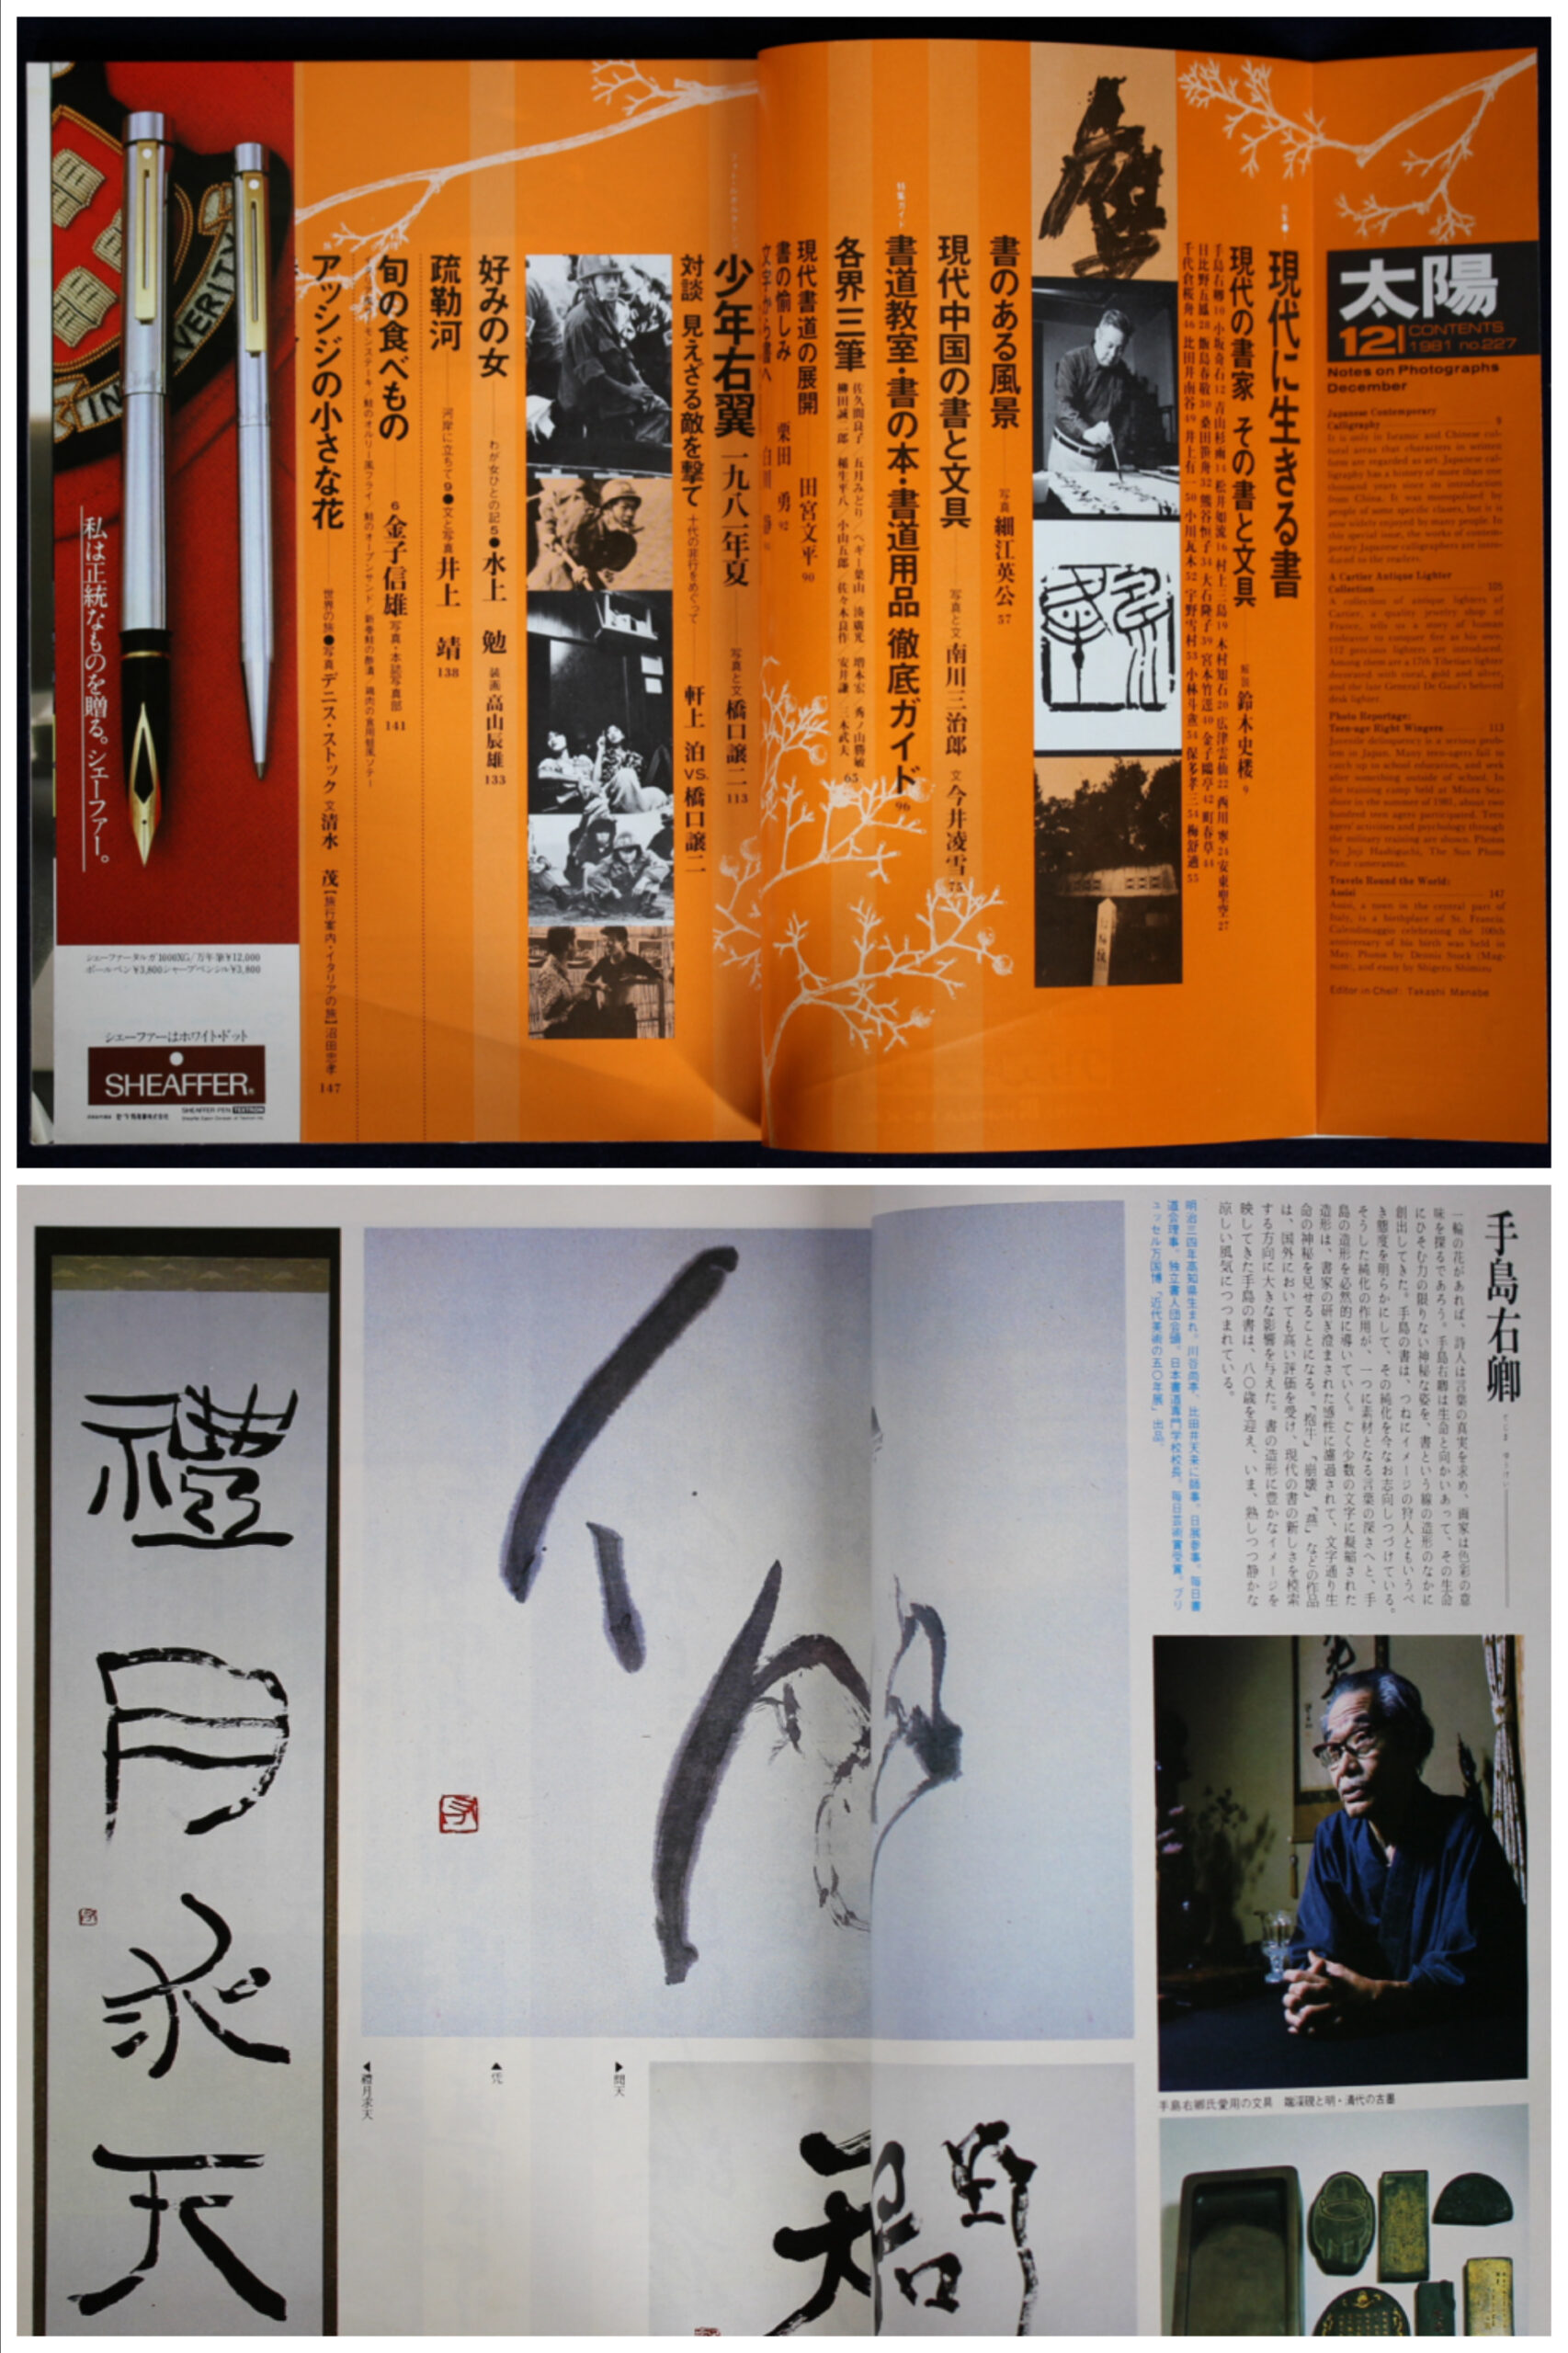 太陽
12 CONTENTS
1981 no.227
Notes on Photographs
December
Japanese Contemporary
Calligraphy 9
It is only in Islamic and Chinese cul-
tural areas that characters in written
form are regarded as art. Japanese cal-
ligraphy has a history of more than one
thousand years since its introduction
from China. It was monopolized by
people of some specific classes, but it is
now widely enjoyed by many people. In
this special issue, the works of contem-
porary Japanese calligraphers are intro-
duced to the readers.
A Cartier Antique Lighter
Collection 105
A collection of antique lighters of
Cartier, a quality jewelry shop of
France, tells us a story of human
endeavor to conquer fire as his own.
112 precious lighters are introduced.
Among them are a 17th Tibetan lighter
decorated with coral, gold and silver,
and the late General De Gaul's beloved
desk lighter.
Photo Reportage:
Teen-age Right Wingers 113
Juvenile delinquency is a serious prob-
lem in Japan. Many teen-agers fail to
catch up to school education, and seek
after something outside of school. In
the training camp held at Miura Sea-
shore in the summer of 1981, about two
hundred teen agers participated. Teen
agers' activities and psychology through
the military training are shown. Photos
by Joji Hashiguchi, The Sun Photo
Prize cameraman.
Travels Round the World:
Assisi 147
Assisi, a town in the central part of
Italy, is a birthplace of St. Francis.
Calendimaggio celebrating the 800th
anniversary of his birth was held in
May. Photos by Dennis Stock (Mag-
num), and essay by Shigeru Shimizu
Editor in Cheif: Takashi Manabe
現代に生きる書
現代の書家 その書と文具 解説 鈴木史楼 9
手島右卿 10 小坂奇石 12 青山杉雨 14 松井如流 16 村上三島 19 木村知石 20 広津雲仙 22 西川 寧 24 安東聖空 27
日比野五鳳 28 飯島春敬 30 桑田笹舟 32 熊谷恒子 34 大石隆子 39 宮本竹逕 40 金子鷗亭 42 町春草 44
千代倉桜舟 46 比田井南谷 49 井上有一 50 小川瓦木 52 宇野雪村 53 小林斗盦 54 保多孝三 54 梅舒適 55
書のある風景 写真 細江英公 57
現代中国の書と文具 写真と文 南川三治郎 文 今井凌雪 75
特集ガイド
書道教室・書の本・書道用品 徹底ガイド 96
各界三筆 65
佐久間良子/五月みどり/ペギー葉山/湊廣光/増本宏/秀ノ山勝敏
柳田誠二郎/稲生平八/小山五郎/佐々木良作/安井謙/三木武夫
現代書道の展開 田宮文平 90
書の愉しみ 栗田 勇 92
文字から書へ 白川 静
少年右翼 一九八一年夏 写真と文 橋口譲二 113
対談 見えざる敵を撃て 十代の非行をめぐって 軒上 泊 VS. 橋口譲二
好みの女 わが女ひとの記 5● 水上 勉 装画 高山辰雄 133
疏勒河 河岸に立ちて 9●文と写真 井上 靖 138
旬の食べもの 6 金子信雄 写真・本誌写真部 141
アッシジの小さな花 世界の旅●写真 デニス・ストック 文 清水 茂 [旅行案内・イタリアの旅] 沼田忠孝 147
VERITY
私は正統なものを贈る。シェーファー。
シェーファータルガ1000XG/万年筆¥12,000
ボールペン¥3,800シャープペンシル¥3,800
シェーファーはホワイト・ドット
SHEAFFER®
SHEAFFER PEN TEXTRON
手島右卿
一輪の花があれば、詩人は言葉の真実を求め、画家は色彩の意
味を探るであろう。手島右卿は生命と向かいあって、その生命
にひそむ力の限りない神秘な姿を、書という線の造形のなかに
創出してきた。手島の書は、つねにイメージの狩人ともいうべ
き態度を明らかにして、その純化を今なお志向しつづけている。
そうした純化の作用が、一つに素材となる言葉の深さへと、手
島の造形を必然的に導いていく。ごく少数の文字に凝縮された
造形は、書家の研ぎ澄まされた感性に濾過されて、文字通り生
命の神秘を見せることになる。「抱牛」「崩壊」「燕」などの作品
は、国外においても高い評価を受け、現代の書の新しさを模索
する方向に大きな影響を与えた。書の造形に豊かなイメージを
映してきた手島の書は、八〇歳を迎え、いま、熟しつつ静かな
涼しい風気につつまれている。
明治三四年高知県生まれ。川谷尚亭、比田井天来に師事。日展参事。毎日書
道会理事。独立書人団会頭。日本書道専門学校校長。毎日芸術賞受賞。ブリ
ュッセル万国博「近代美術の五〇年展」出品。
手島右卿氏愛用の文具 端渓硯と明・清代の古墨
▶問天
▲凭
◀禮月求天
禮月求天